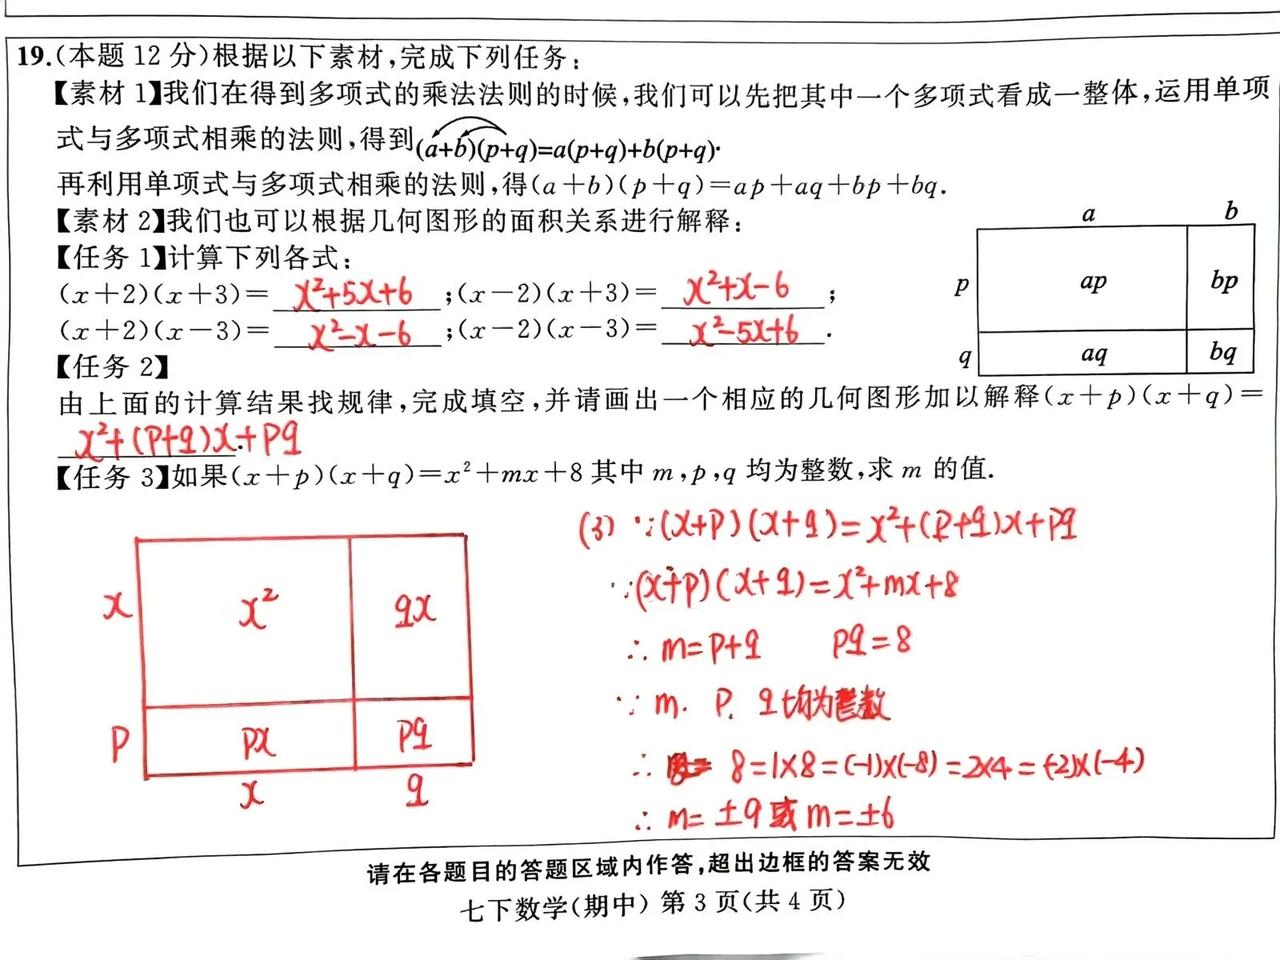 19.(本题12分)根据以下素材,完成下列任务:
【素材1】我们在得到多项式的乘法法则的时候,我们可以先把其中一个多项式看成一整体,运用单项
式与多项式相乘的法则,得到(a+b)(p+q)=a(p+q)+b(p+q).
再利用单项式与多项式相乘的法则,得(a+b)(p+q)=ap+aq+bp+bq.
【素材2】我们也可以根据几何图形的面积关系进行解释:
a b
p ap bp
q aq bq
【任务1】计算下列各式:
(x+2)(x+3)= x²+5x+6 ;(x-2)(x+3)= x²+x-6 ;
(x+2)(x-3)= x²-x-6 ;(x-2)(x-3)= x²-5x+6 .
【任务2】
由上面的计算结果找规律,完成填空,并请画出一个相应的几何图形加以解释(x+p)(x+q)=
x²+(p+q)x+pq.
【任务3】如果(x+p)(x+q)=x²+mx+8其中m,p,q均为整数,求m的值.
x x² qx
p px pq
x q
(3) ∵(x+p)(x+q)=x²+(p+q)x+pq
∵(x+p)(x+q)=x²+mx+8
∴m=p+q pq=8
∵m. p. q均为整数
∴ 8=1×8=(-1)×(-8)=2×4=(-2)×(-4)
∴m=±9或m=±6
请在各题目的答题区域内作答,超出边框的答案无效
七下数学(期中) 第3页(共4页)